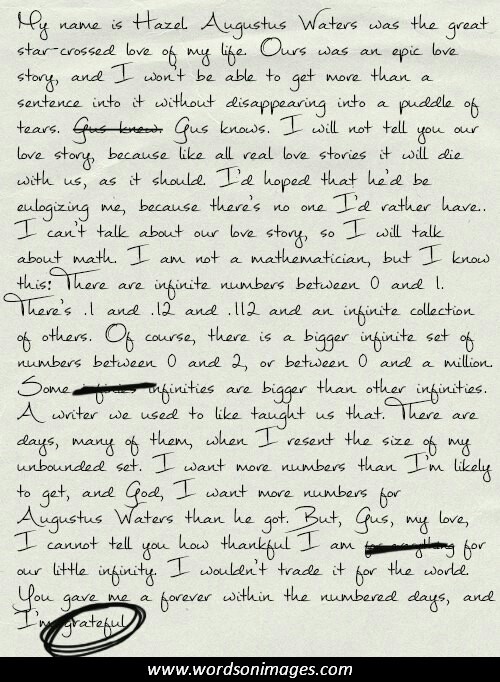 My name is Hazel. Augustus Waters was the great
star-crossed love of my life. Ours was an epic love
story, and I won't be able to get more than a
sentence into it without disappearing into a puddle of
tears. Gus knew. Gus knows. I will not tell you our
love story, because like all real love stories it will die
with us, as it should. I'd hoped that he'd be
eulogizing me, because there's no one I'd rather have..
I can't talk about our love story, so I will talk
about math. I am not a mathematician, but I know
this: There are infinite numbers between 0 and 1.
There's .1 and .12 and .112 and an infinite collection
of others. Of course, there is a bigger infinite set of
numbers between 0 and 2, or between 0 and a million.
Some infinities are bigger than other infinities.
A writer we used to like taught us that. There are
days, many of them, when I resent the size of my
unbounded set. I want more numbers than I'm likely
to get, and God, I want more numbers for
Augustus Waters than he got. But, Gus, my love,
I cannot tell you how thankful I am for
our little infinity. I wouldn't trade it for the world.
You gave me a forever within the numbered days, and
I'm grateful.
www.wordsonimages.com